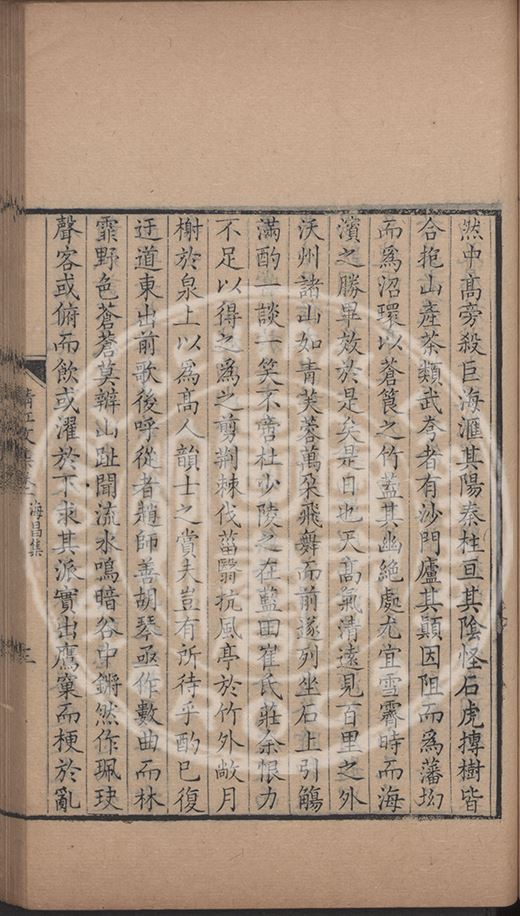 然中高旁殺巨海滙其陽秦柱亘其陰怪石虎摶樹皆
合抱山產茶類武夸者有沙門廬其顛因阻而爲藩坳
而爲沼環以蒼筤之竹葢其幽絶處尤宜雪霽時而海
濱之勝畢效於是矣是日也天高氣清遠見百里之外
沃州諸山如青芙蓉萬朶飛舞而前遂列坐石上引觴
滿酌一談一笑不啻杜少陵之在藍田崔氏莊余恨力
不足以得之爲之剪荆棘伐菑翳抗風亭於竹外敞月
榭於泉上以爲高人韻士之賞夫豈有所待乎酌已復
迂道東出前歌後呼從者趙師善胡琴亟作數曲而林
霏野色蒼蒼莫辨山趾聞流水鳴暗谷中鏘然作珮玦
聲客或俯而飲或濯於下求其派實出鷹窠而梗於亂
清江文集卷 海昌集 三